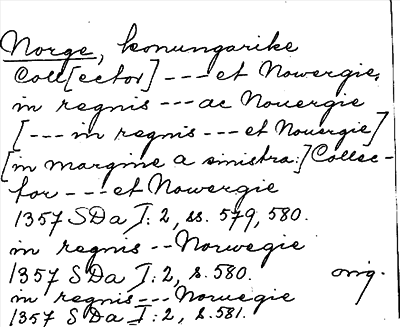 Norge, konungarike
Coll[ector] --- et Nowergie,
in regnis --- ac Nouergie
[--- in regnis --- et Nouergie]
[in margine a sinistra:] Collec-
tor --- et Nowergie
1357 SDa I: 2, ss. 579, 580.
in regnis -- Norwegie
1357 SDa I: 2, s. 580. orig.
in regnis --- Noruegie
1357 SDa I: 2, s. 581.